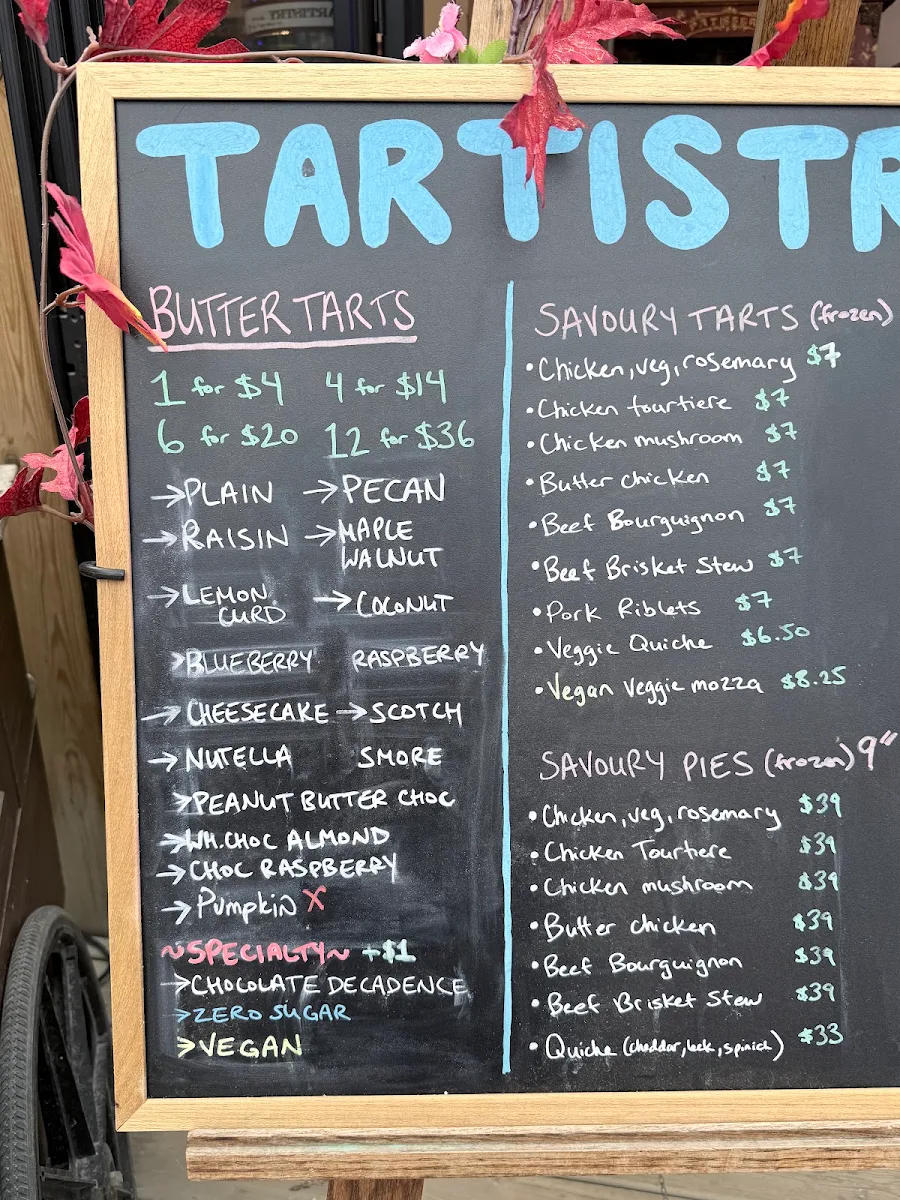 TARTISTR
BUTTER TARTS
1 for $4 4 for $14
6 for $20 12 for $36
→PLAIN →PECAN
→RAISIN →MAPLE
WALNUT
→LEMON
CURD →COCONUT
>BLUEBERRY RASPBERRY
→CHEESECAKE →SCOTCH
→NUTELLA SMORE
→PEANUT BUTTER CHOC
→WH.CHOC ALMOND
→CHOC RASPBERRY
→Pumpkin X
~SPECIALTY~ +$1
→CHOCOLATE DECADENCE
>ZERO SUGAR
>VEGAN
SAVOURY TARTS (frozen)
•Chicken, veg, rosemary $7
•Chicken tourtiere $7
•Chicken mushroom $7
•Butter chicken $7
•Beef Bourguignon $7
•Beef Brisket Stew $7
•Pork Riblets $7
•Veggie Quiche $6.50
•Vegan Veggie mozza $8.25
SAVOURY PIES (frozen) 9"
•Chicken, veg, rosemary $39
•Chicken Tourtiere $39
•Chicken mushroom $39
•Butter chicken $39
•Beef Bourguignon $39
•Beef Brisket Stew $39
•Quiche (cheddar, leek, spinich) $33